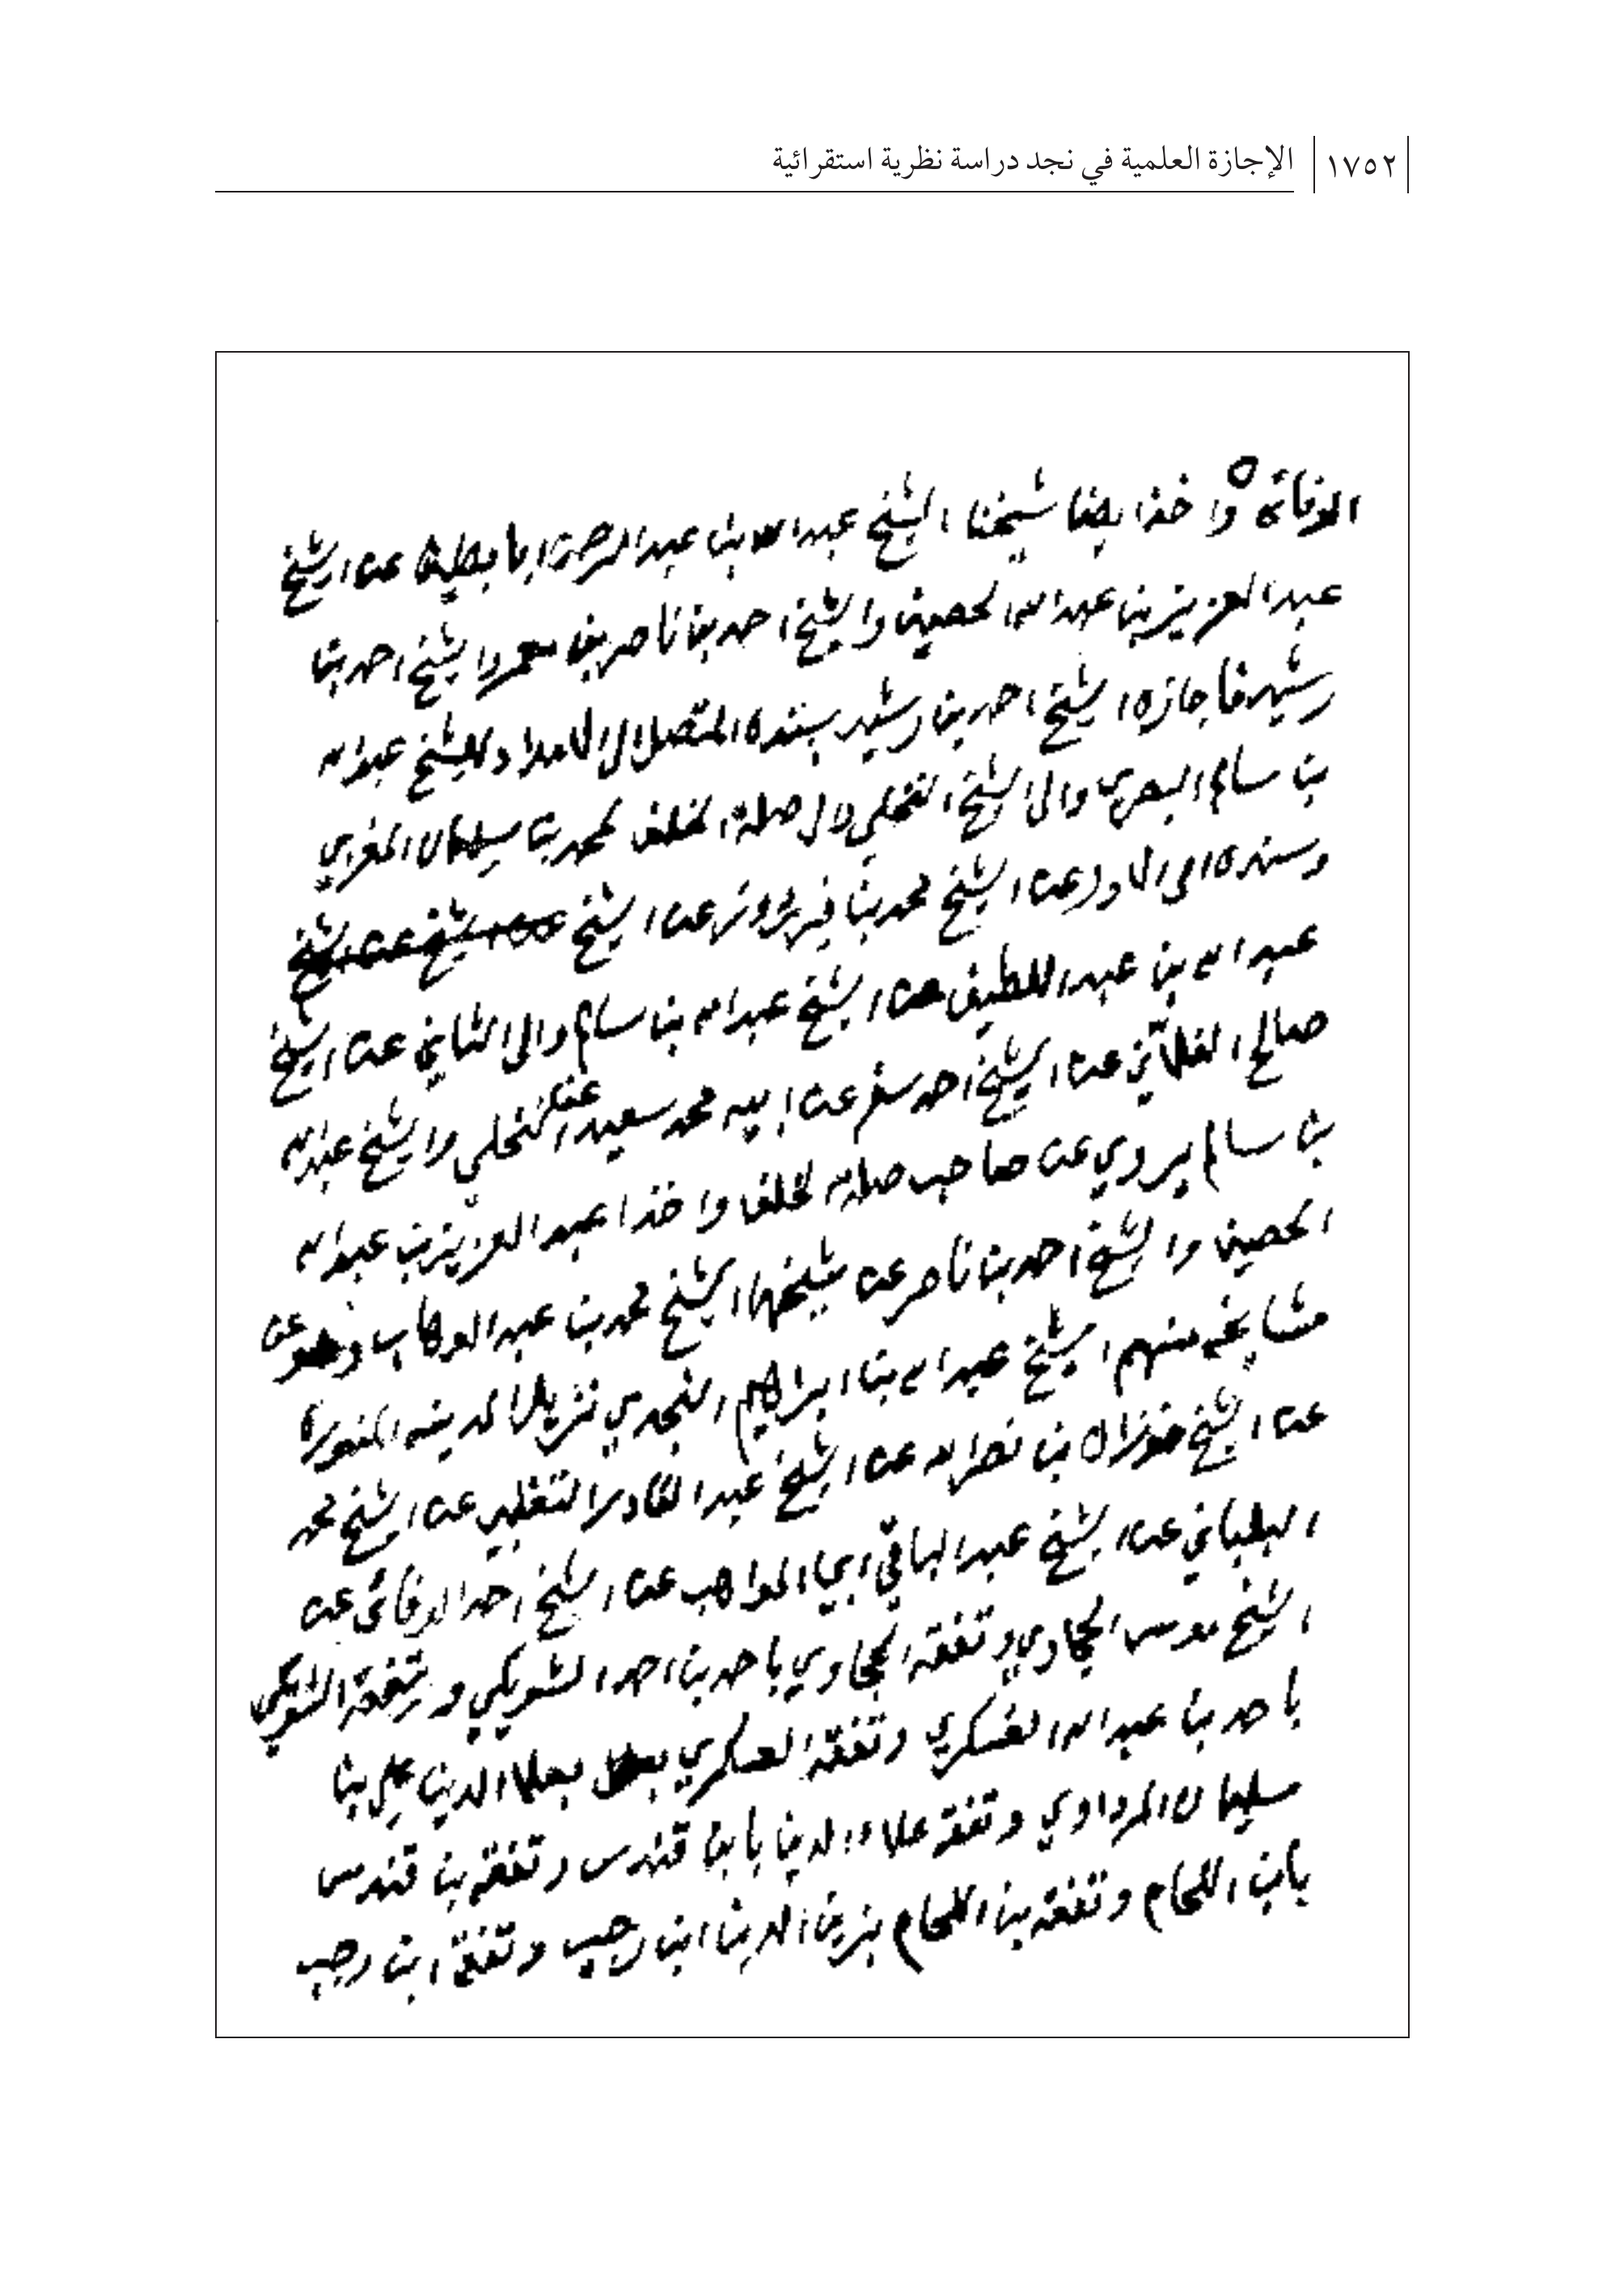 ١٧٥٢ الإجازة العلمية في نجد دراسة نظرية استقرائية
الوفائه واخذ ايضا شيخنا الشيخ عبدالله بن عبدالرحمن ابا بطين عن الشيخ
عبدالعزيز بن عبدالله الحصين والشيخ احمد بن ناصر بن معمر والشيخ احمد بن
رشيد فاجازه الشيخ احمد بن رشيد بسنده المتصل الى الامداد للشيخ عبدالله
بن سالم البصري والى الشيخ النخلي والى صلة الخلف لمحمد بن سليمان المغربي
وسنده الى الاول عن الشيخ محمد بن فيروز عن الشيخ
عبدالله بن عبداللطيف عن الشيخ عبدالله بن سالم والى الثاني عن الشيخ
صالح الفلاني عن الشيخ احمد سفر عن ابيه محمد سعيد عن النخلي والشيخ عبدالله
بن سالم يروي عن صاحب صلة الخلف واخذ عبدالعزيز بن عبدالله
الحصين والشيخ احمد بن ناصر عن شيخهما الشيخ محمد بن عبدالوهاب وهو عن
مشايخه منهم الشيخ عبدالله بن ابراهيم النجدي نزيل المدينه المنوره
عن الشيخ فوزان بن نصرالله عن الشيخ عبدالقادر التغلبي عن الشيخ محمد
البلباني عن الشيخ عبدالباقي ابي المواهب عن الشيخ احمد الوفائي عن
الشيخ موسى الحجاوي وتفقه الحجاوي باحمد بن احمد الشويكي وتفقه الشويكي
باحمد بن عبدالله العسكري وتفقه العسكري بعلا الدين علي بن
سليمان المرداوي وتفقه علاء الدين بابن قندس وتفقه بن قندس
بابن اللحام وتفقه بن اللحام بزين الدين ابن رجب وتفقه ابن رجب